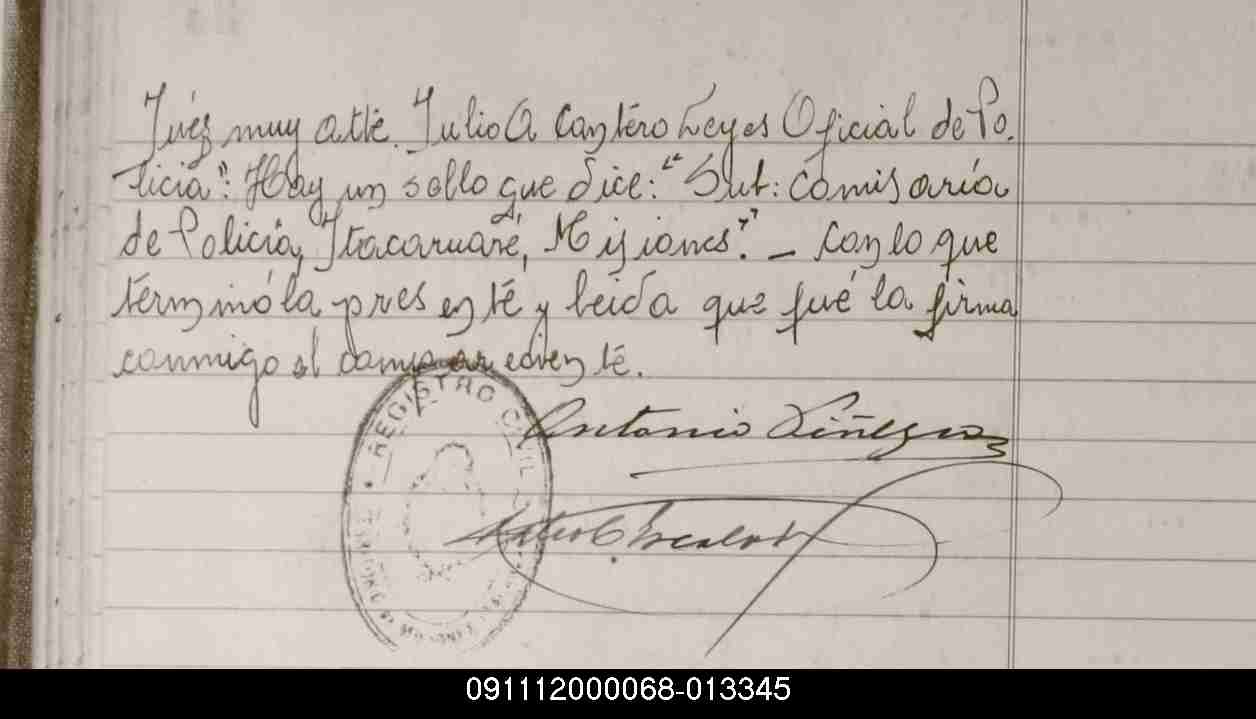 Juez muy atte. Julio A Cantero Leyes Oficial de Po.
licia": Hay un sello que dice: "Sub: comisaría
de Policia, Itacaruaré, Misiones". _ Con lo que
terminó la presente y leida que fué la firma
conmigo el compareciente.
REGISTRO CIVIL
Antonio
091112000068-013345